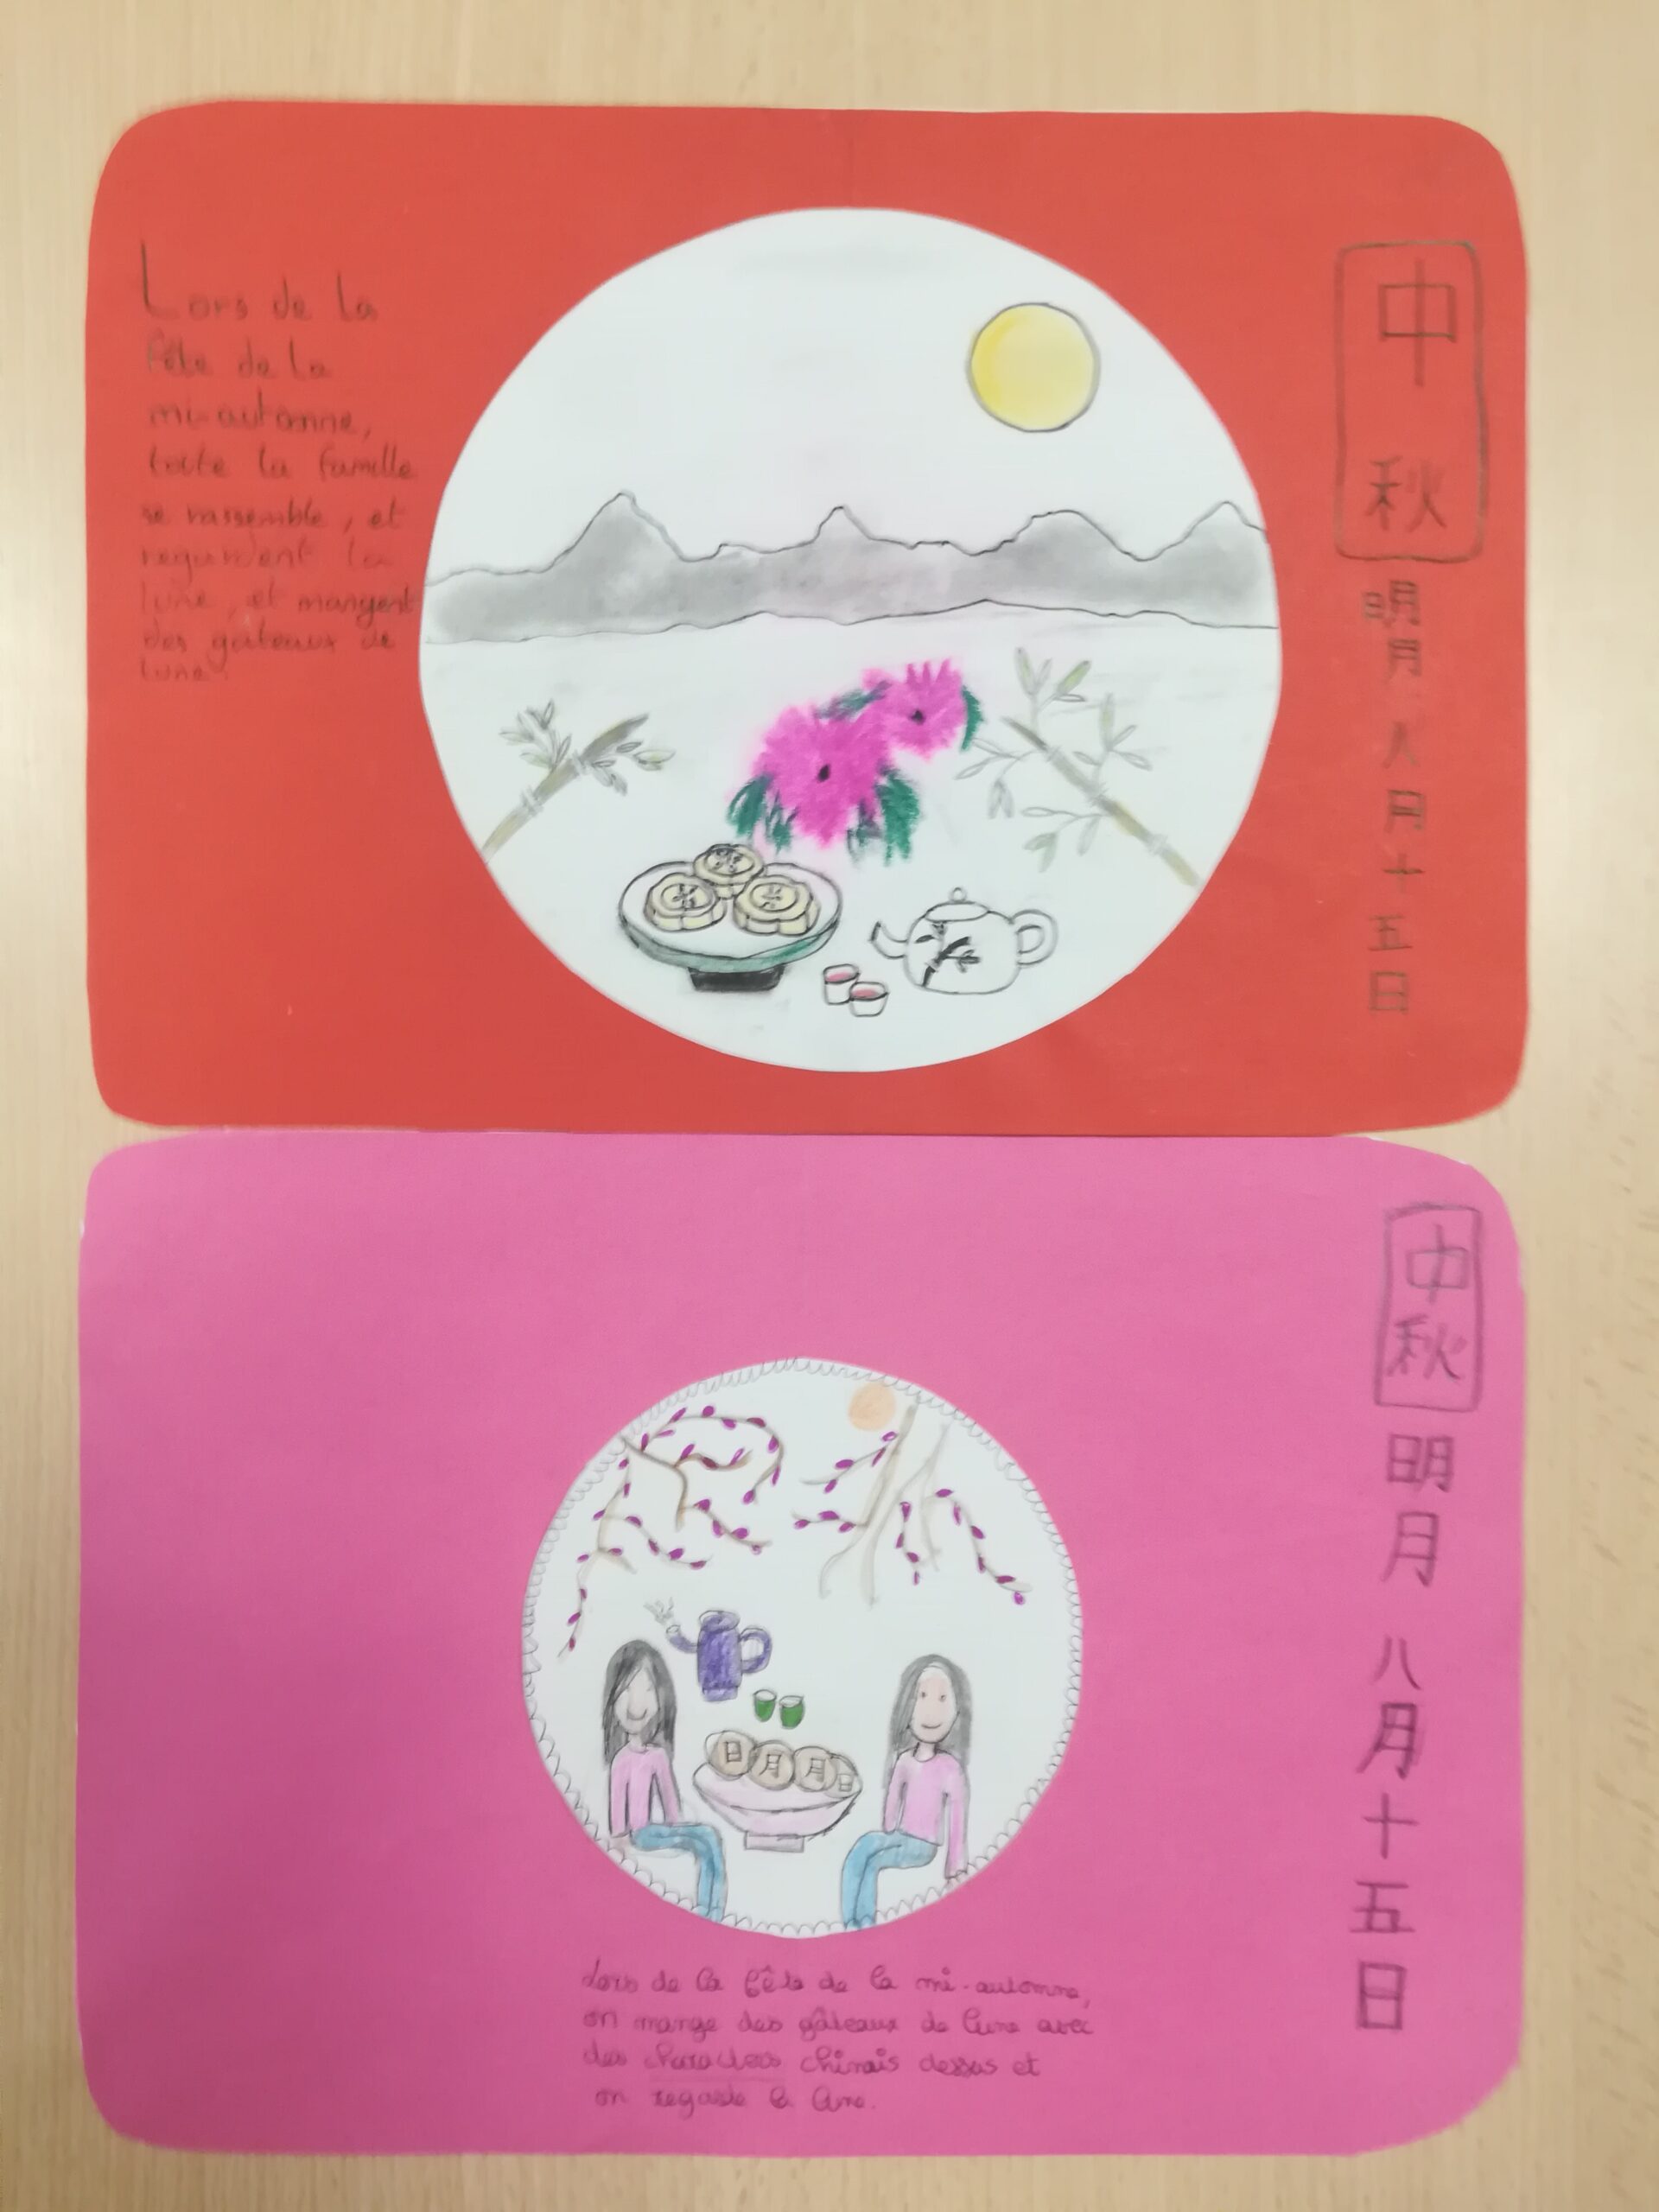 Lors de la
fête de la
mi-automne,
toute la famille
se rassemble, et
regardent la
lune, et mangent
des gâteaux de
lune.
中秋
明月八月十五日
中秋
明月八月十五日
日月月日
Lors de la fête de la mi-automne,
on mange des gâteaux de lune avec
des charactères chinois dessus et
on regarde la lune.